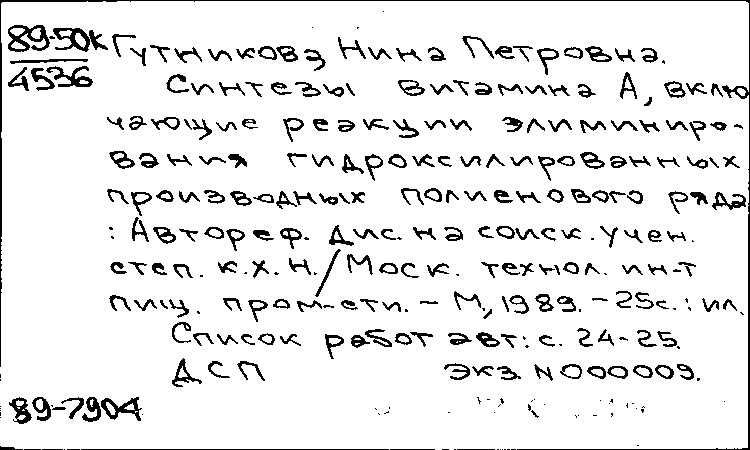 89-50к
4536
Гутникова, Нина Петровна.
Синтезы витамина А, вклю
чающие реакции элиминиро-
вания гидроксилированных
производных полиенового ряда
: Автореф. дис. на соиск. учен.
степ. к.х.н. / Моск. технол. ин-т
пищ. пром-сти. - М., 1989. - 25с. : ил.
Список работ авт: с. 24-25.
ДСП экз. N000009.
89-7904